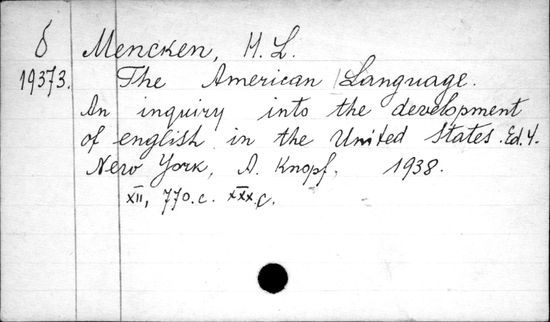 б Mencken, H. L.
19373. The American Language.
An inquiry into the development
of english in the United States. Ed. 4.
New York, A. Knopf. 1938.
XII, 770.c. XXX.c.